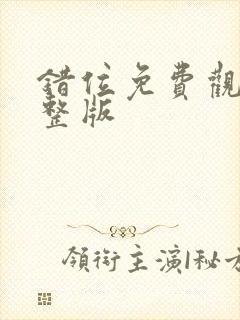 錯位免費觀
整版
領銜主演|秘方